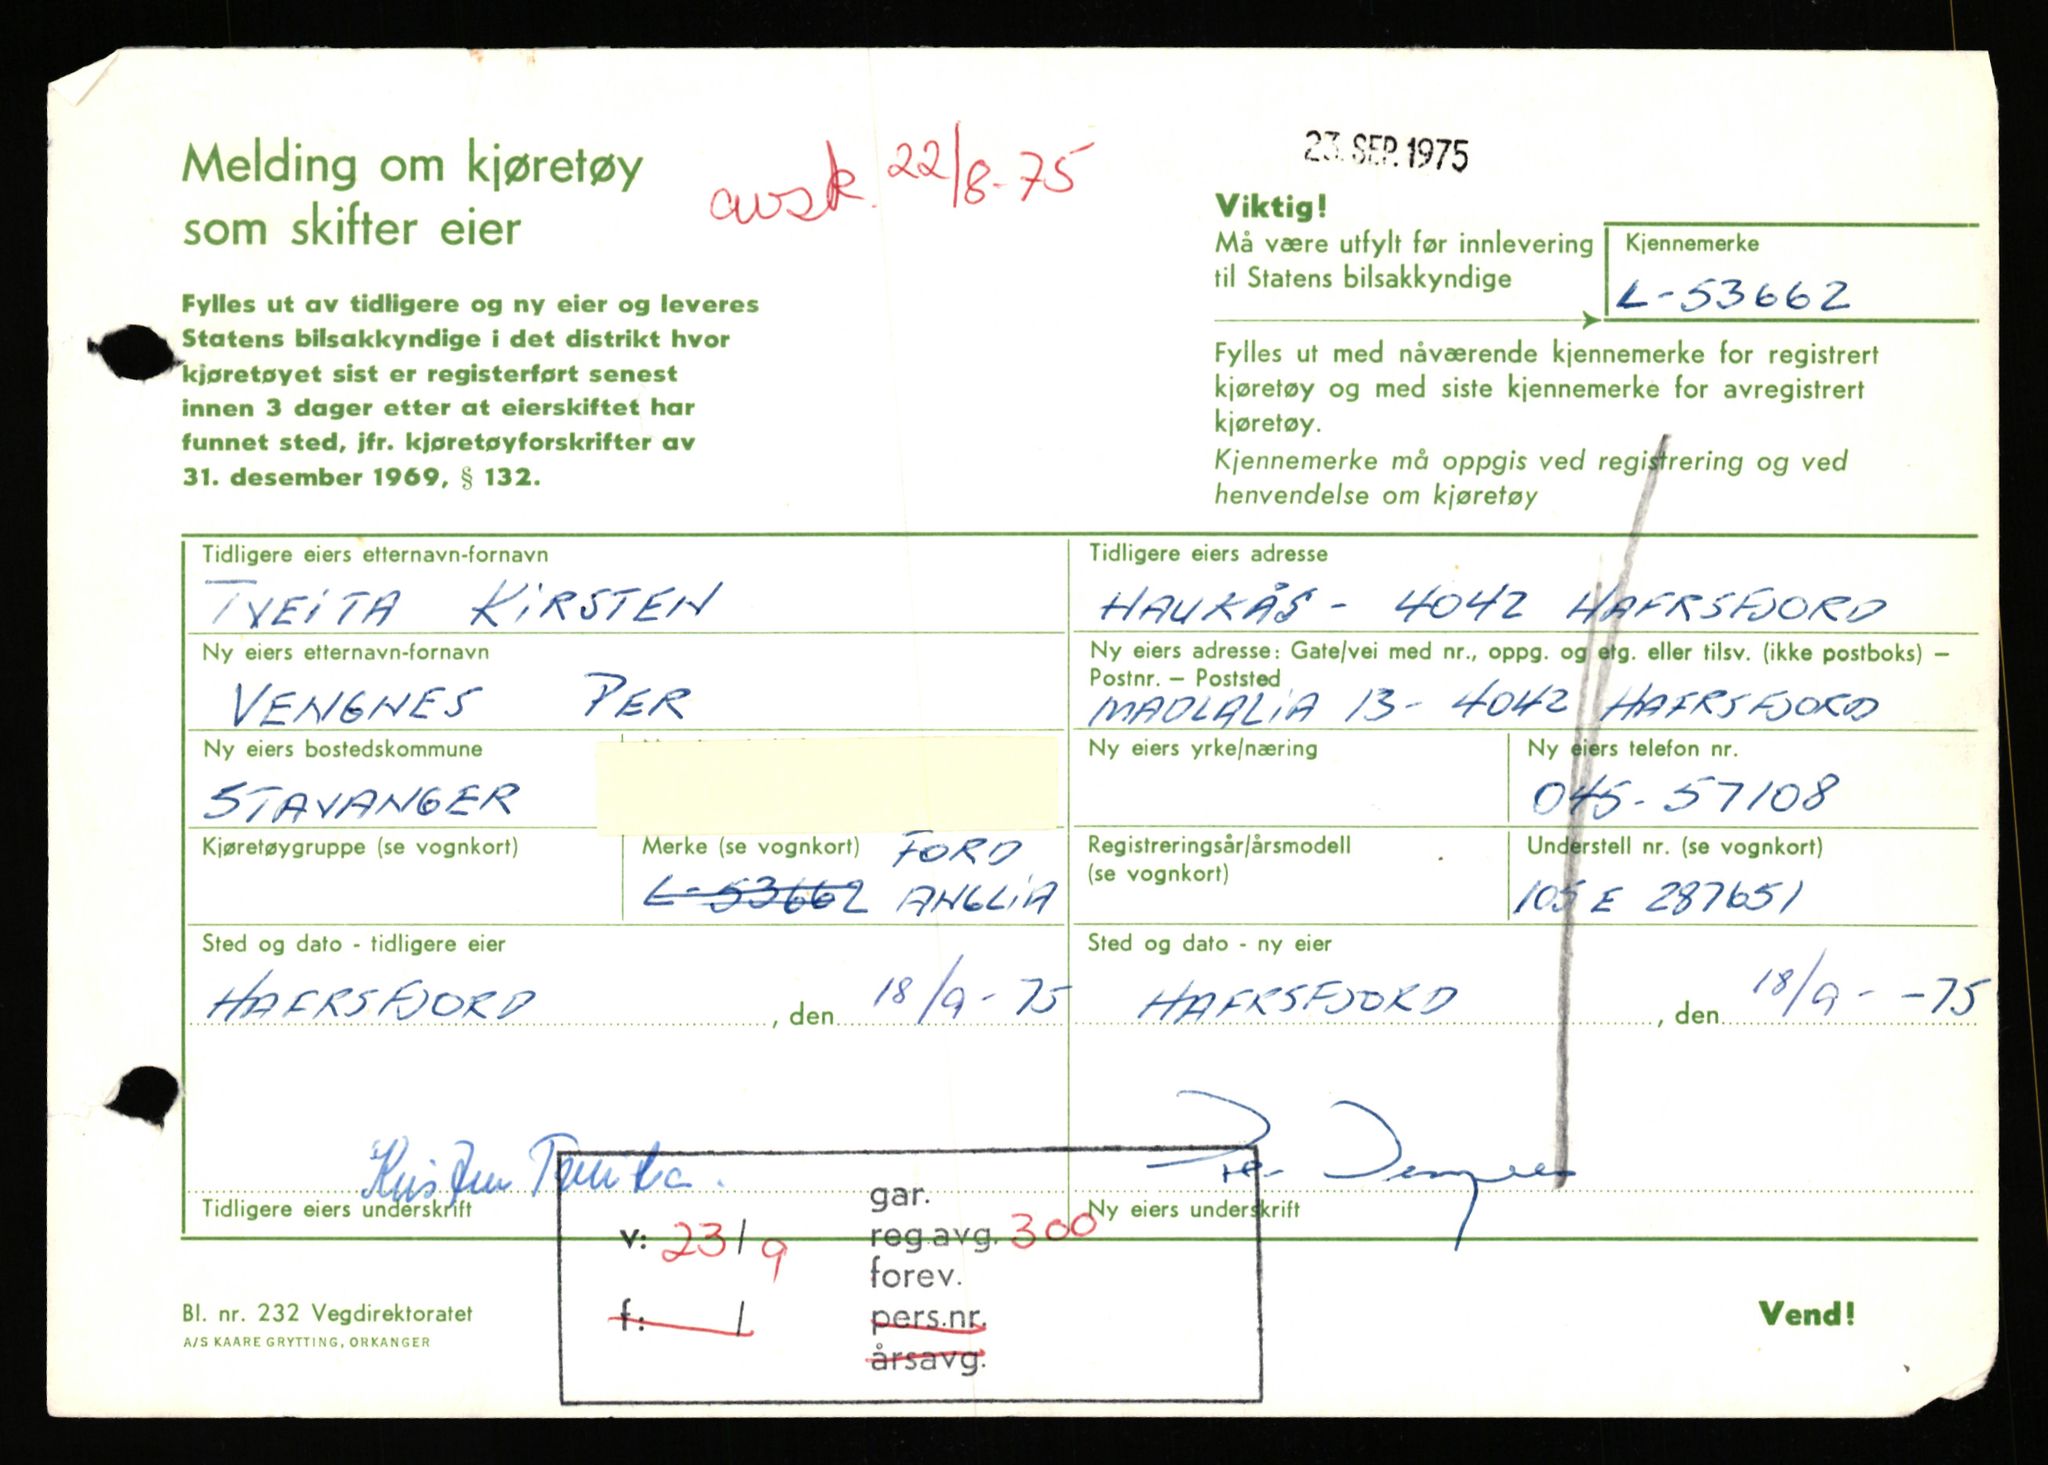 Melding om kjøretøy
som skifter eier
avsk. 22/8-75
23. SEP. 1975
Fylles ut av tidligere og ny eier og leveres
Statens bilsakkyndige i det distrikt hvor
kjøretøyet sist er registerført senest
innen 3 dager etter at eierskiftet har
funnet sted, jfr. kjøretøyforskrifter av
31. desember 1969, § 132.
Viktig!
Må være utfylt før innlevering
til Statens bilsakkyndige
Kjennemerke
L-53662
Fylles ut med nåværende kjennemerke for registrert
kjøretøy og med siste kjennemerke for avregistrert
kjøretøy.
Kjennemerke må oppgis ved registrering og ved
henvendelse om kjøretøy
Tidligere eiers etternavn-fornavn
TVEITA KIRSTEN
Tidligere eiers adresse
HAUKÅS - 4042 HAFRSFJORD
Ny eiers etternavn-fornavn
VENGNES PER
Ny eiers adresse: Gate/vei med nr., oppg. og etg. eller tilsv. (ikke postboks) –
Postnr. – Poststed
MADLALIA 13 - 4042 HAFRSFJORD
Ny eiers bostedskommune
STAVANGER
Ny eiers yrke/næring
Ny eiers telefon nr.
045-57108
Kjøretøygruppe (se vognkort)
Merke (se vognkort) FORD
L-53662 ANGLIA
Registreringsår/årsmodell
(se vognkort)
Understell nr. (se vognkort)
105 E 287651
Sted og dato - tidligere eier
HAFRSFJORD, den 18/9-75
Sted og dato - ny eier
HAFRSFJORD, den 18/9--75
Kirsten Tveita.
Per Vengnes
Tidligere eiers underskrift
Ny eiers underskrift
gar.
v: 23/9 reg.avg. 300
forev.
f: / pers.nr.
årsavg.
Bl. nr. 232 Vegdirektoratet
A/S KAARE GRYTTING, ORKANGER
Vend!